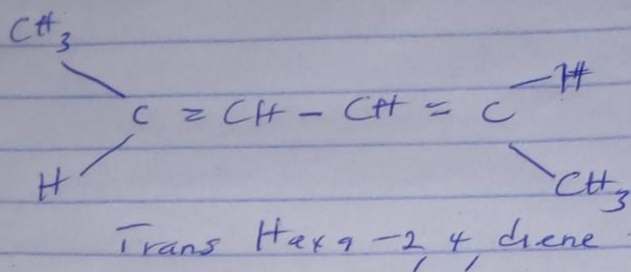 CH3
C = CH - CH = C - H
H
CH3
Trans Hexa -2,4, diene